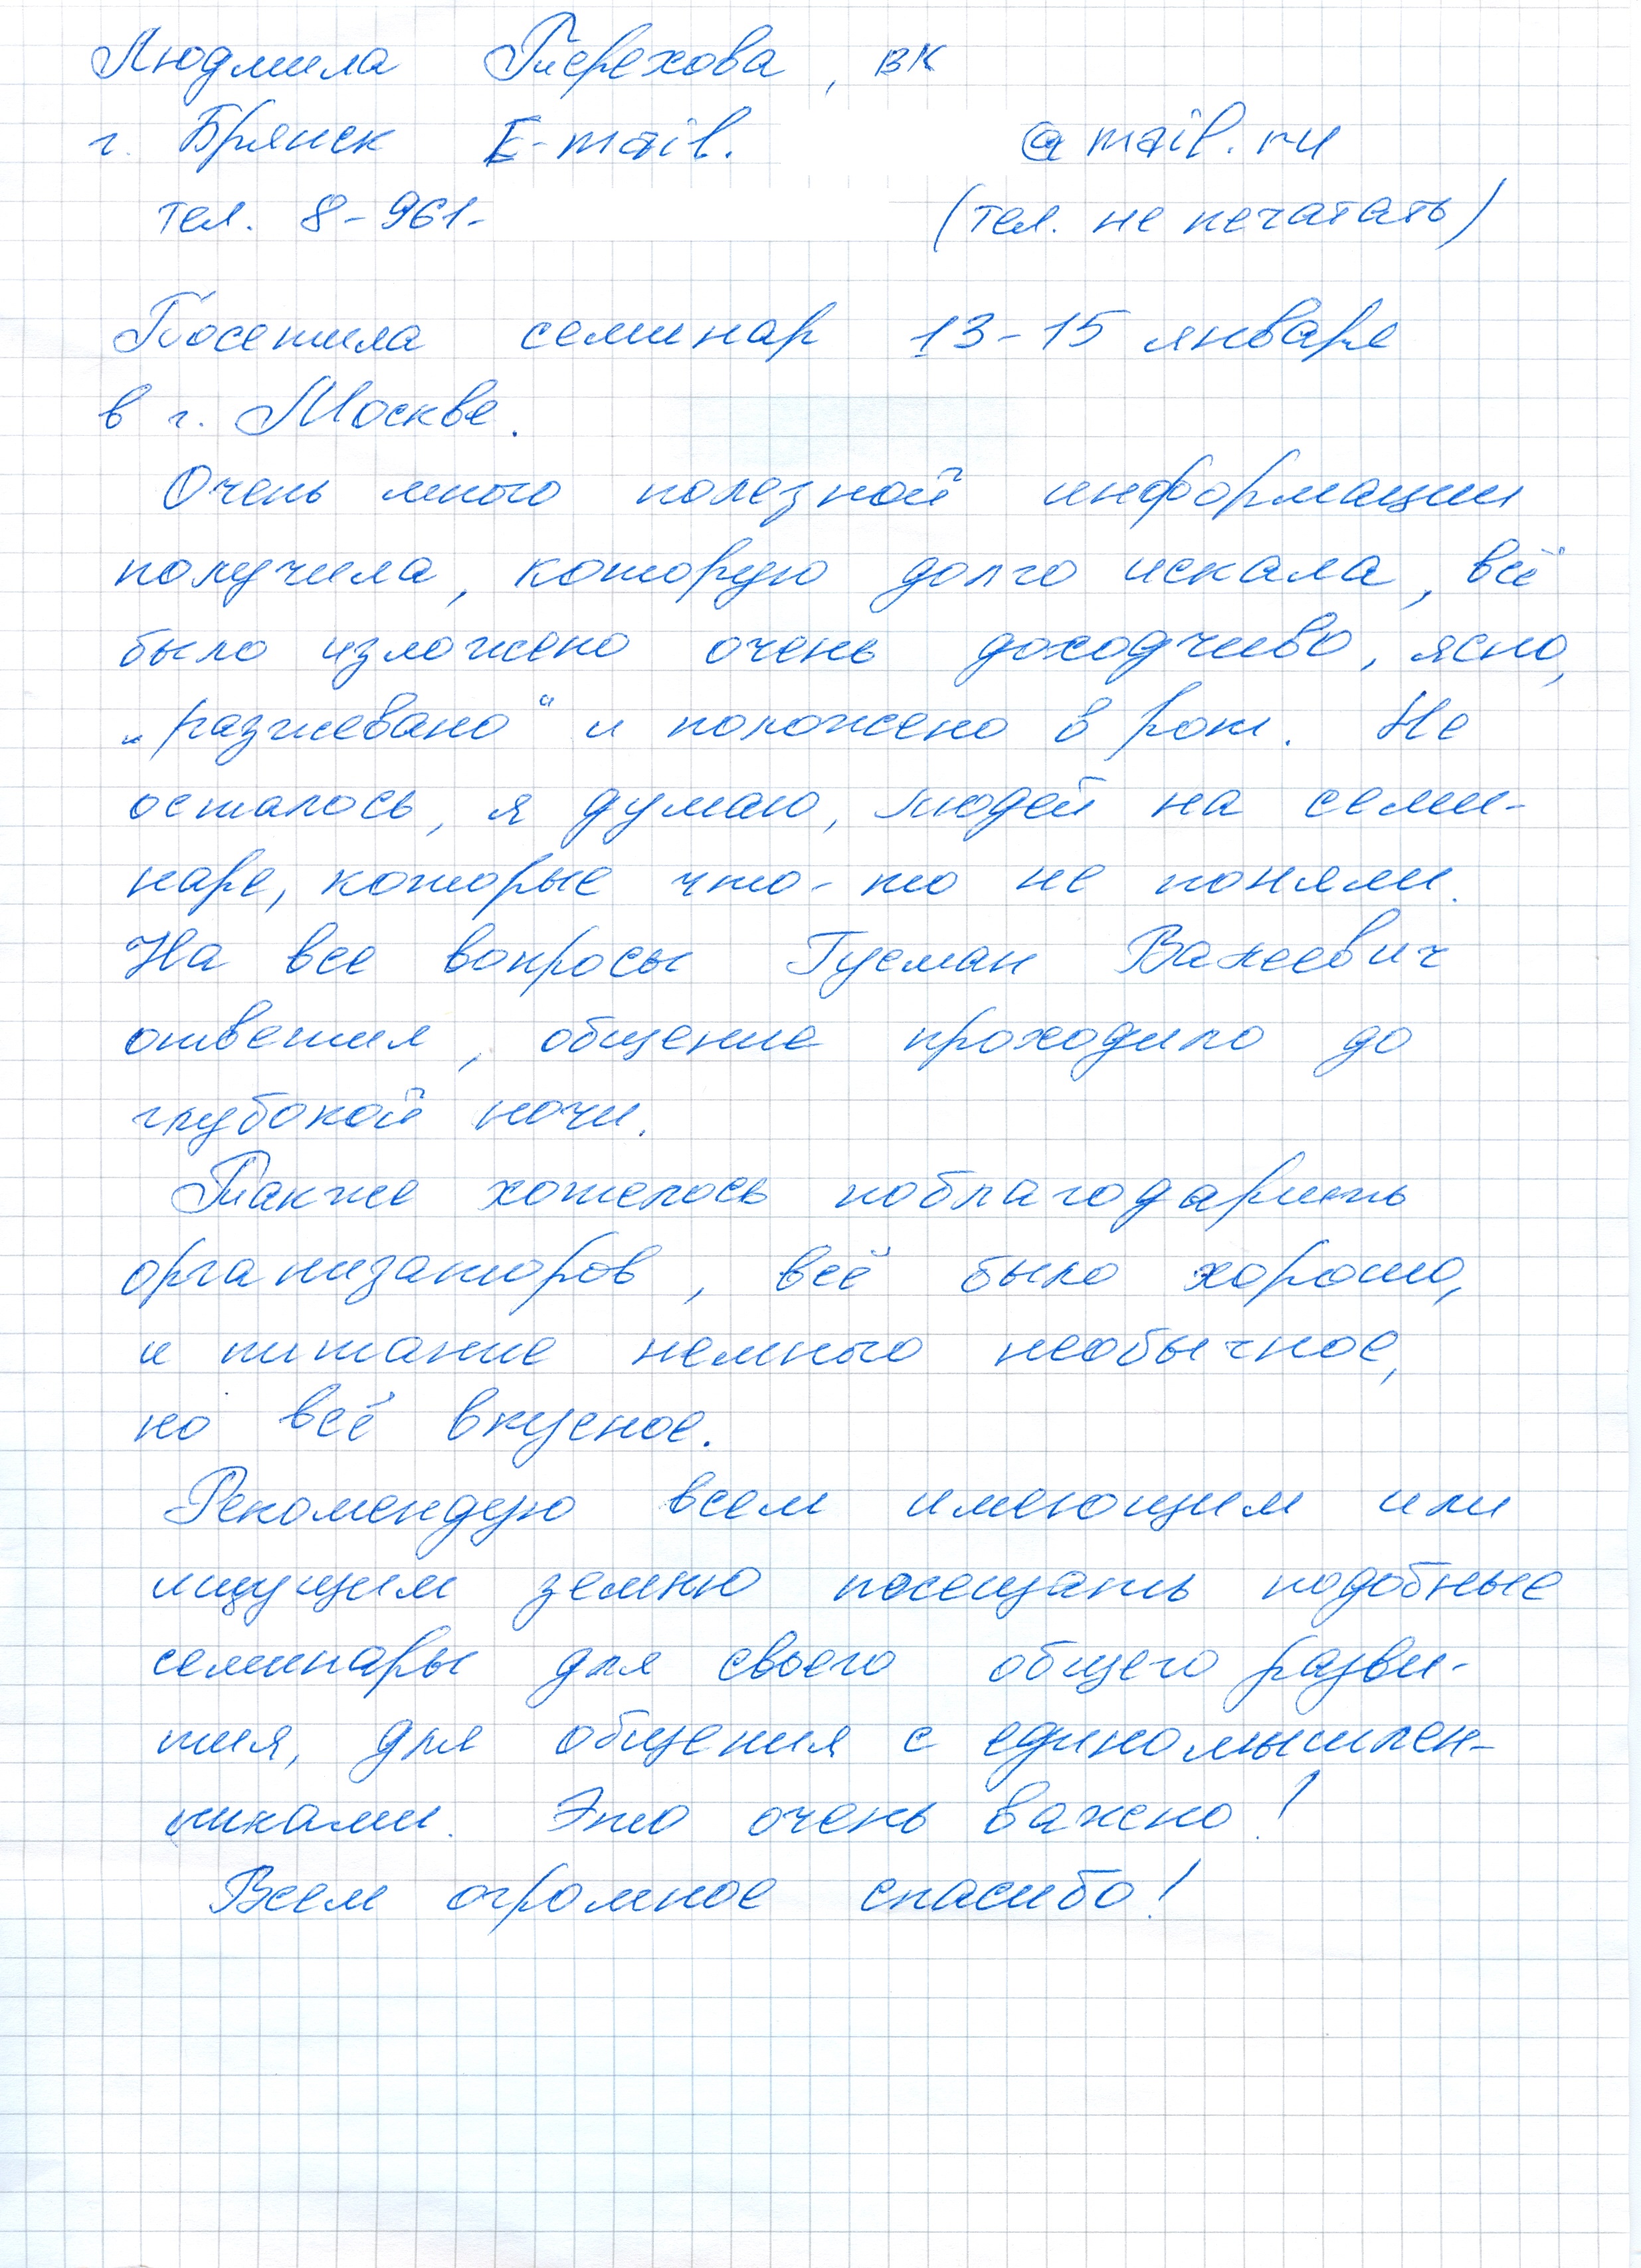 Людмила Терехова, вк
г. Брянск E-mail. @mail.ru
тел. 8-961- (тел. не печатать)
Посетила семинар 13-15 январе
в г. Москве.
Очень много полезной информации
получила, которую долго искала, всё
было изложено очень доходчиво, ясно,
„разжевано“ и положено в рот. Не
осталось, я думаю, людей на семи-
наре, которые что-то не поняли.
На все вопросы Гусман Валеевич
ответил, общение проходило до
глубокой ночи.
Также хотелось поблагодарить
организаторов, всё было хорошо,
и питание немного необычное,
но всё вкусное.
Рекомендую всем имеющим или
ищущим землю посещать подобные
семинары для своего общего разви-
тия, для общения с единомышлен-
никами. Это очень важно!
Всем огромное спасибо!